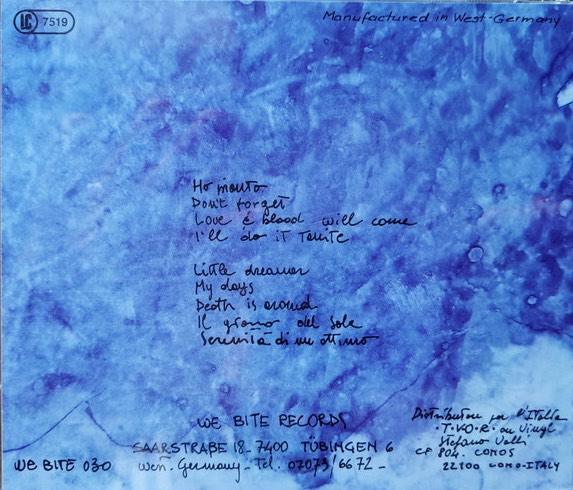 LC 7519
Manufactured in West-Germany
Ho
Don't forget
Love & blood will come
I'll do it Tonite
Little dreamer
My days
Death is around
Il giorno del Sole
Serenità di un attimo
WE BITE RECORDS
SAARSTRAßE 18 - 7400 TÜBINGEN 6
West. Germany - Tel. 07073/6672 -
WE BITE 030
Distribution per l'Italia
T.V.O.R. on Vinyl
Stefano Valli
CP 804.
22100 COMO-ITALY